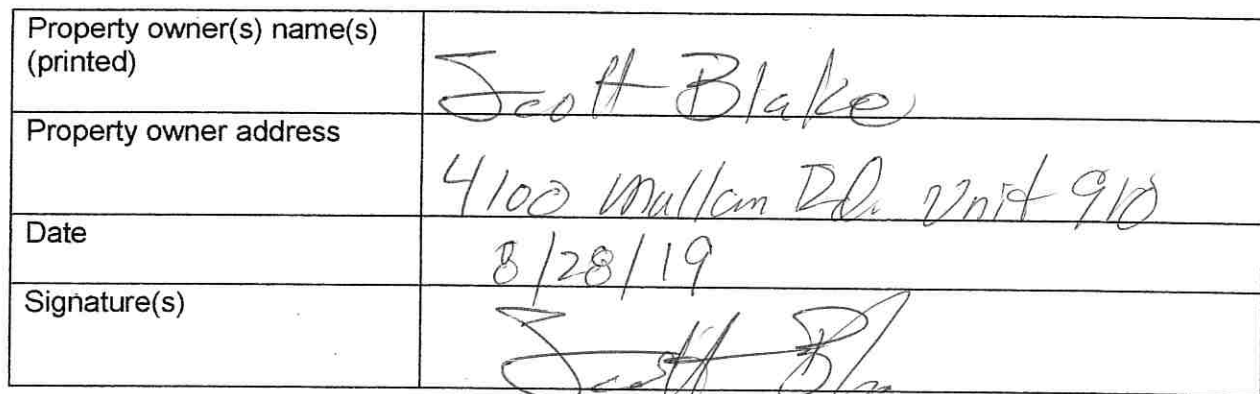 Property owner(s) name(s)
(printed)
Scott Blake
Property owner address
4100 Mullan Rd. Unit 910
Date
8/28/19
Signature(s)
Scott